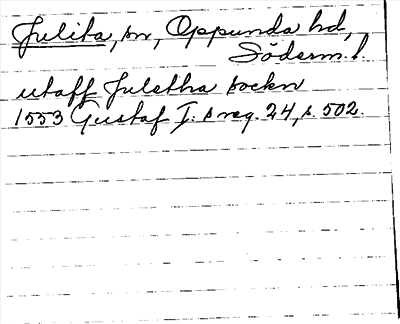 Julita, sn, Oppunda hd,
Söderm. l.
utaff Juletha sockn
1553 Gustaf I:s reg. 24, s. 502.